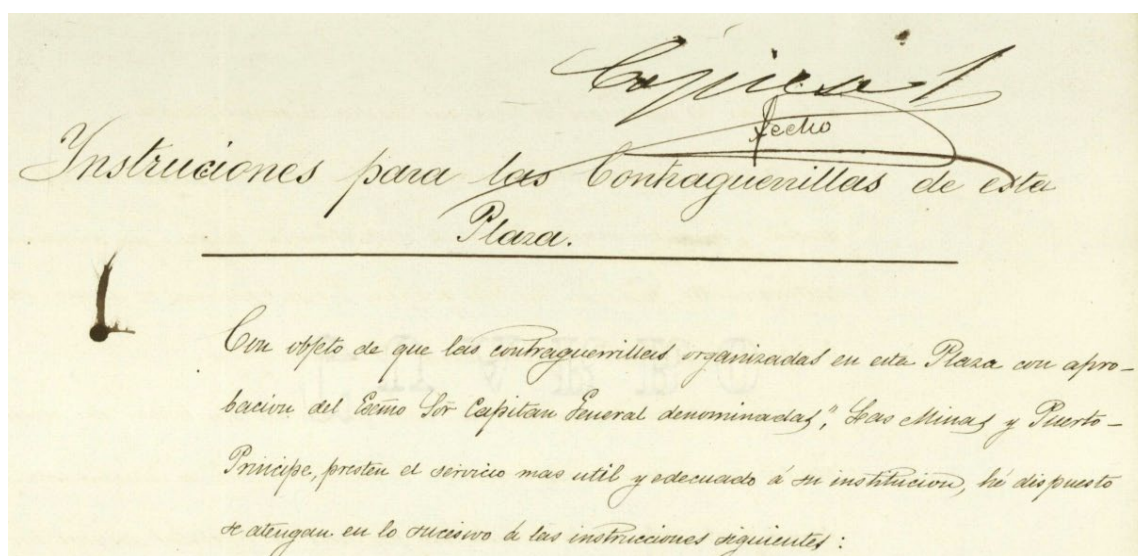 Copiese
fecho
Instruciones para las Contraguerrillas de esta
Plaza.
Con objeto de que las contraguerrillas organizadas en esta Plaza con apro-
bacion del Exĉmo Sōr Capitan General denominadas, "Las Minas y Puerto-
Principe, presten el servicio mas util y adecuado á su institucion, hé dispuesto
se atengan en lo sucesivo á las instrucciones siguientes: